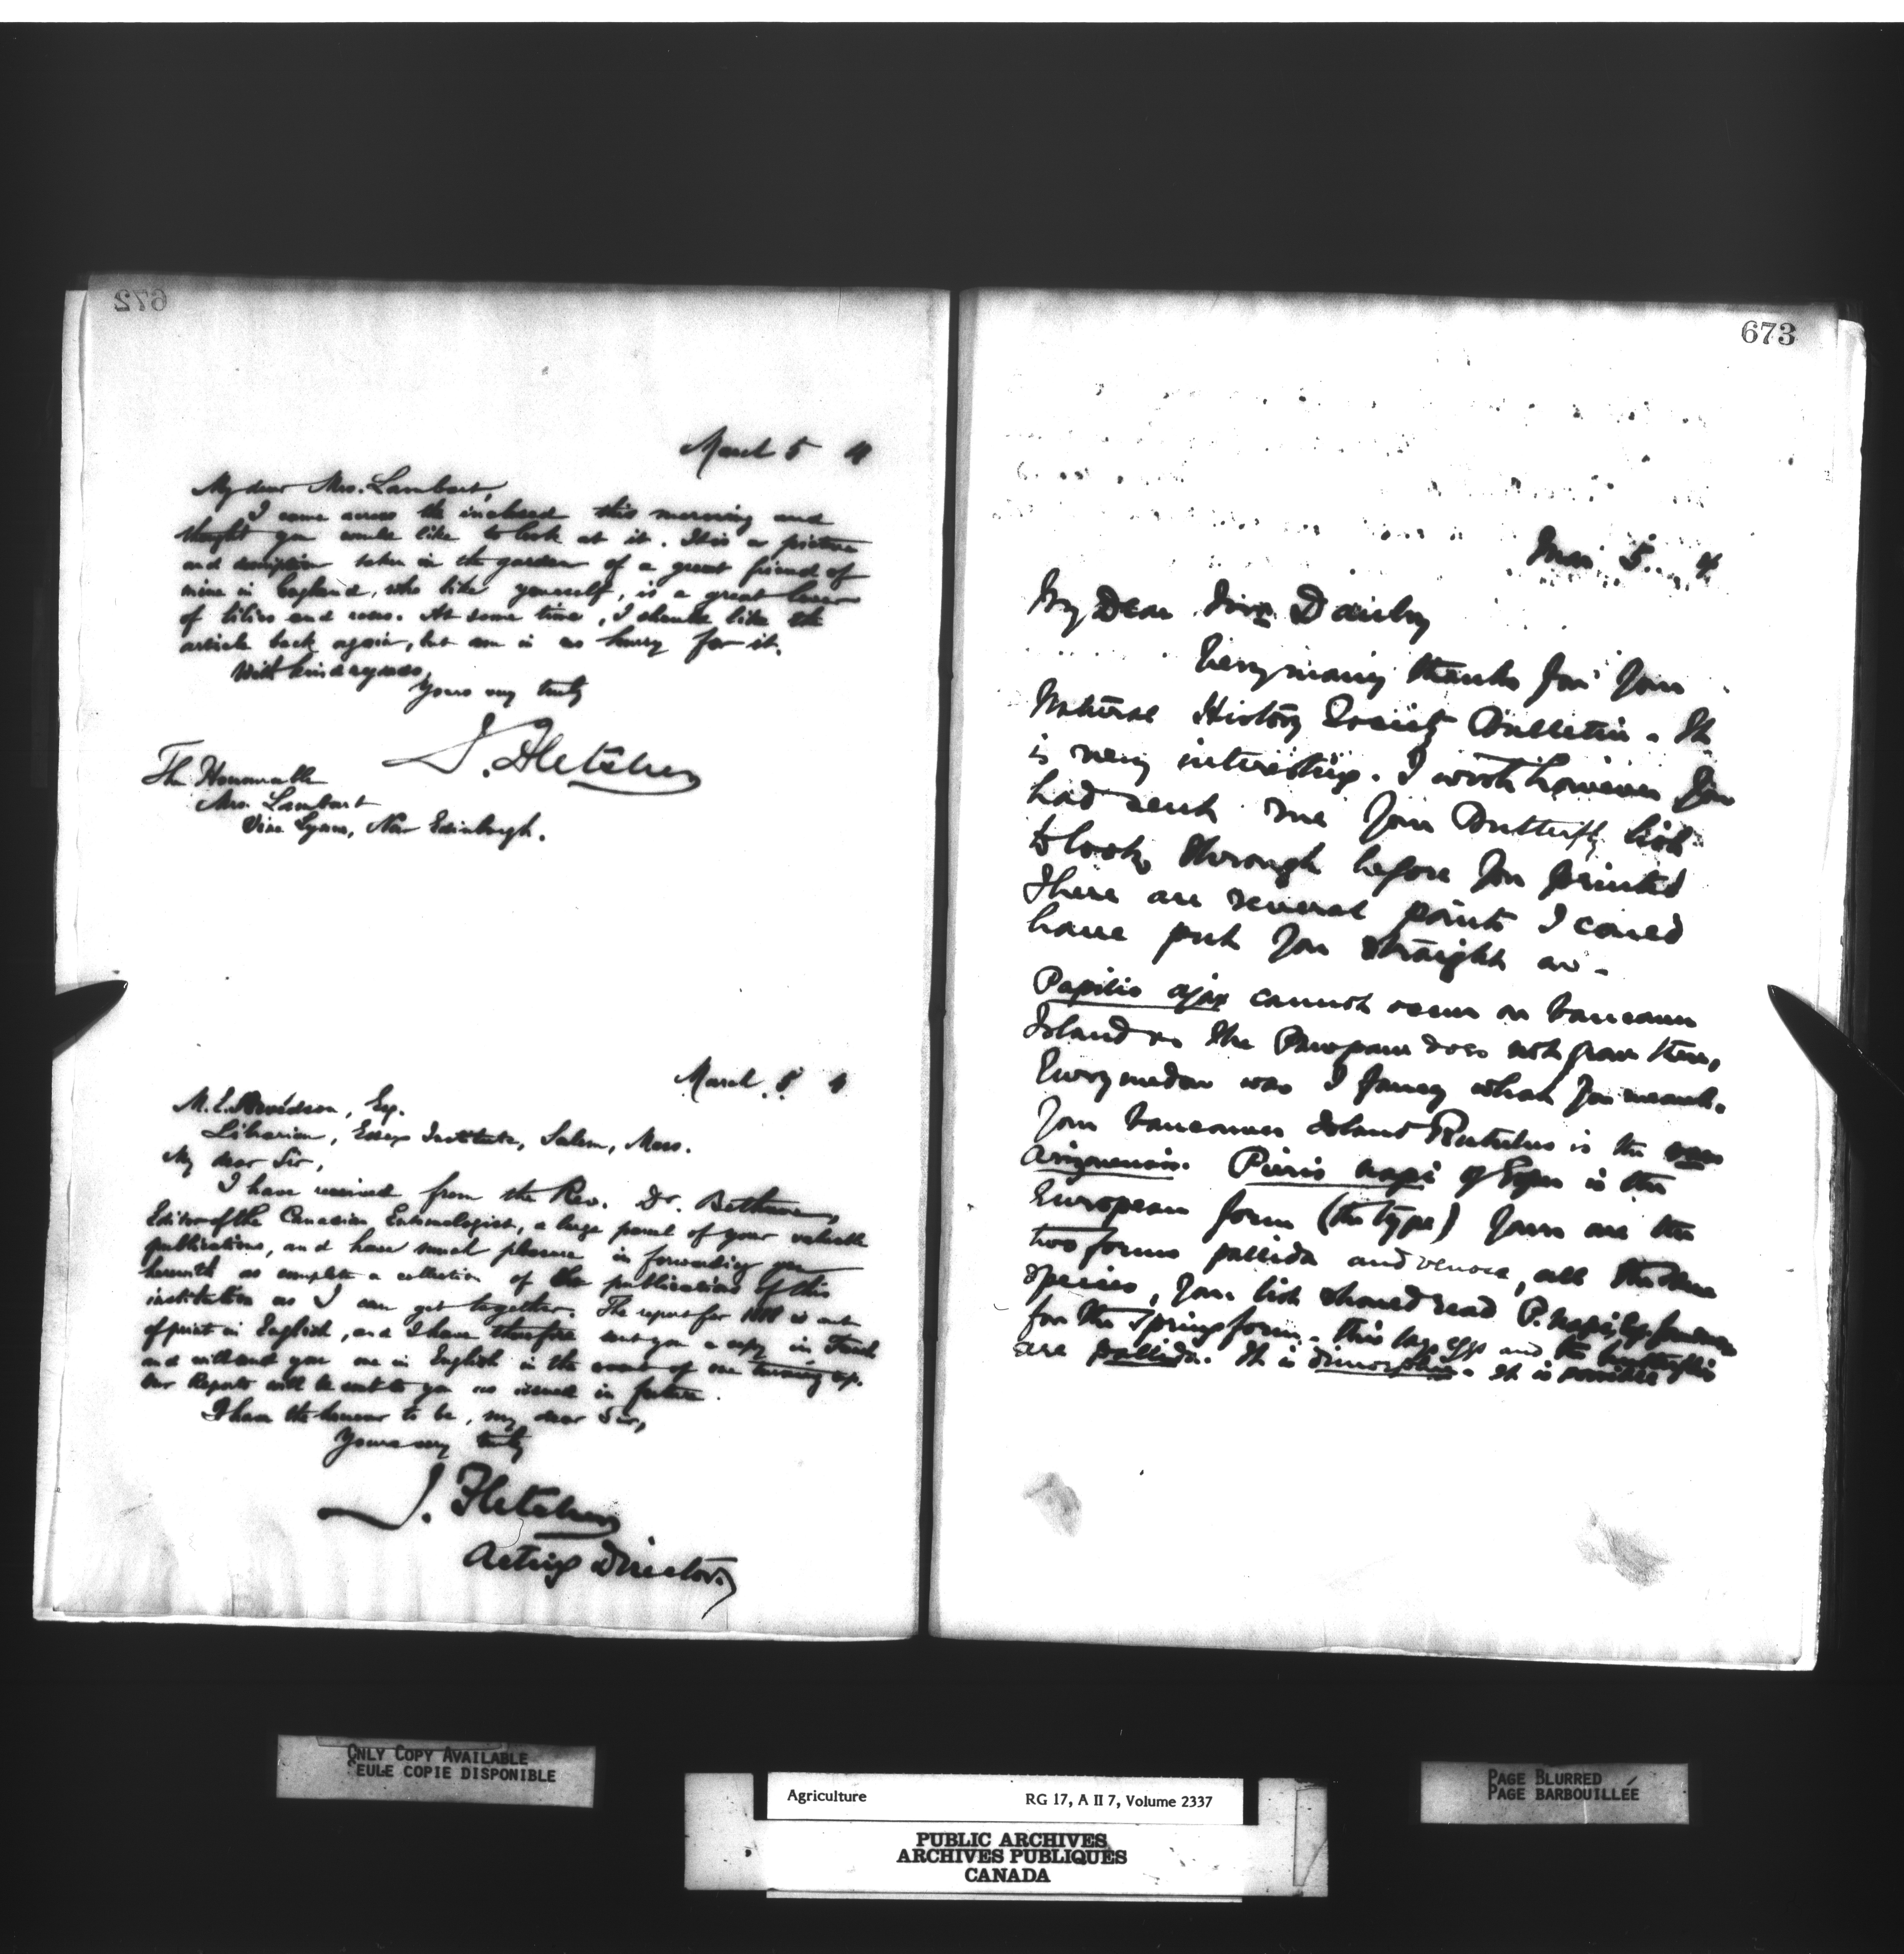 672
March 5 4
My dear Mrs. Lambart,
I came across the inclosed this morning and
thought you would like to look at it. It is a picture
and taken in the garden of a great friend of
mine in England, who like yourself, is a great lover
of lilies and roses. At some time, I should like the
article back again, but am in no hurry for it.
With kind regards,
Yours very truly
J. Fletcher
The Honourable
Mrs. Lambart
Vine Lynne, New Edinburgh.
March 5 4
Esq.
Librarian, Essex Institute, Salem, Mass.
My dear Sir,
I have received from the Rev. Dr. Bethune,
Editor of the Canadian Entomologist, a large parcel of your valuable
publications, and have much pleasure in forwarding you
herewith as complete a collection of the publications of this
institution as I can get together. The report for is out
of print in English, and I have therefore sent you a copy in French
and will send you one in English in the event of one turning up.
Our Reports will be sent to you as issued in future.
I have the honour to be, my dear Sir,
Yours very truly
J. Fletcher
Acting Director.
673
Mar 5 4
My Dear Danby
Very many thanks for your
Natural History Society Bulletin. It
is very interesting. I wish however you
had sent me your Butterfly list
to look through before you printed
There are several points I could
have put you straight on -
Papilio ajax cannot occur on Vancouver
Island as the Pawpaw does not grow there,
Eurymedon was I fancy what you meant.
Your Vancouver Island Rutulus is the var
arizonensis. Pieris napi of Esper is the
European form (the type) Yours are the
two forms pallida and venosa, all the same
species, Your list should read P. napi
for the Spring form. This lays eggs and the butterflies
are pallida. It is dimorphic. It is possible
ONLY COPY AVAILABLE
SEULE COPIE DISPONIBLE
Agriculture RG 17, A II 7, Volume 2337
PUBLIC ARCHIVES
ARCHIVES PUBLIQUES
CANADA
PAGE BLURRED
PAGE BARBOUILLÉE